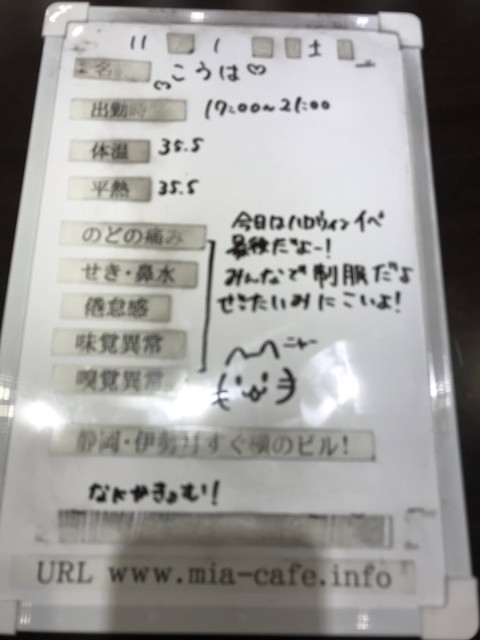 11 1 土
名 こうは♡
出勤時 17:00~21:00
体温 35.5
平熱 35.5
のどの痛み
せき・鼻水
倦怠感
味覚異常
嗅覚異常
今日はハロウィンイベ
最後だよー!
みんなで制服だよ
ぜったいみにこいよ!
ニャー
静岡・伊勢丹すぐ横のビル!
URL www.mia-cafe.info